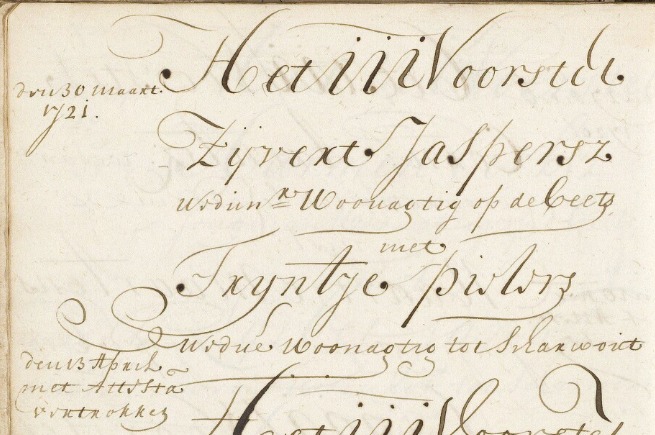 den 30 Maart
1721.
Het III Voorstel
Zijvert Jaspersz
Weduwnr Woonagtig op de Beets
met
Tryntje Pieters
Weduê Woonagtig tot Scharwout
den 13 April
met Attesta
vertrokken
Het III Voorstel